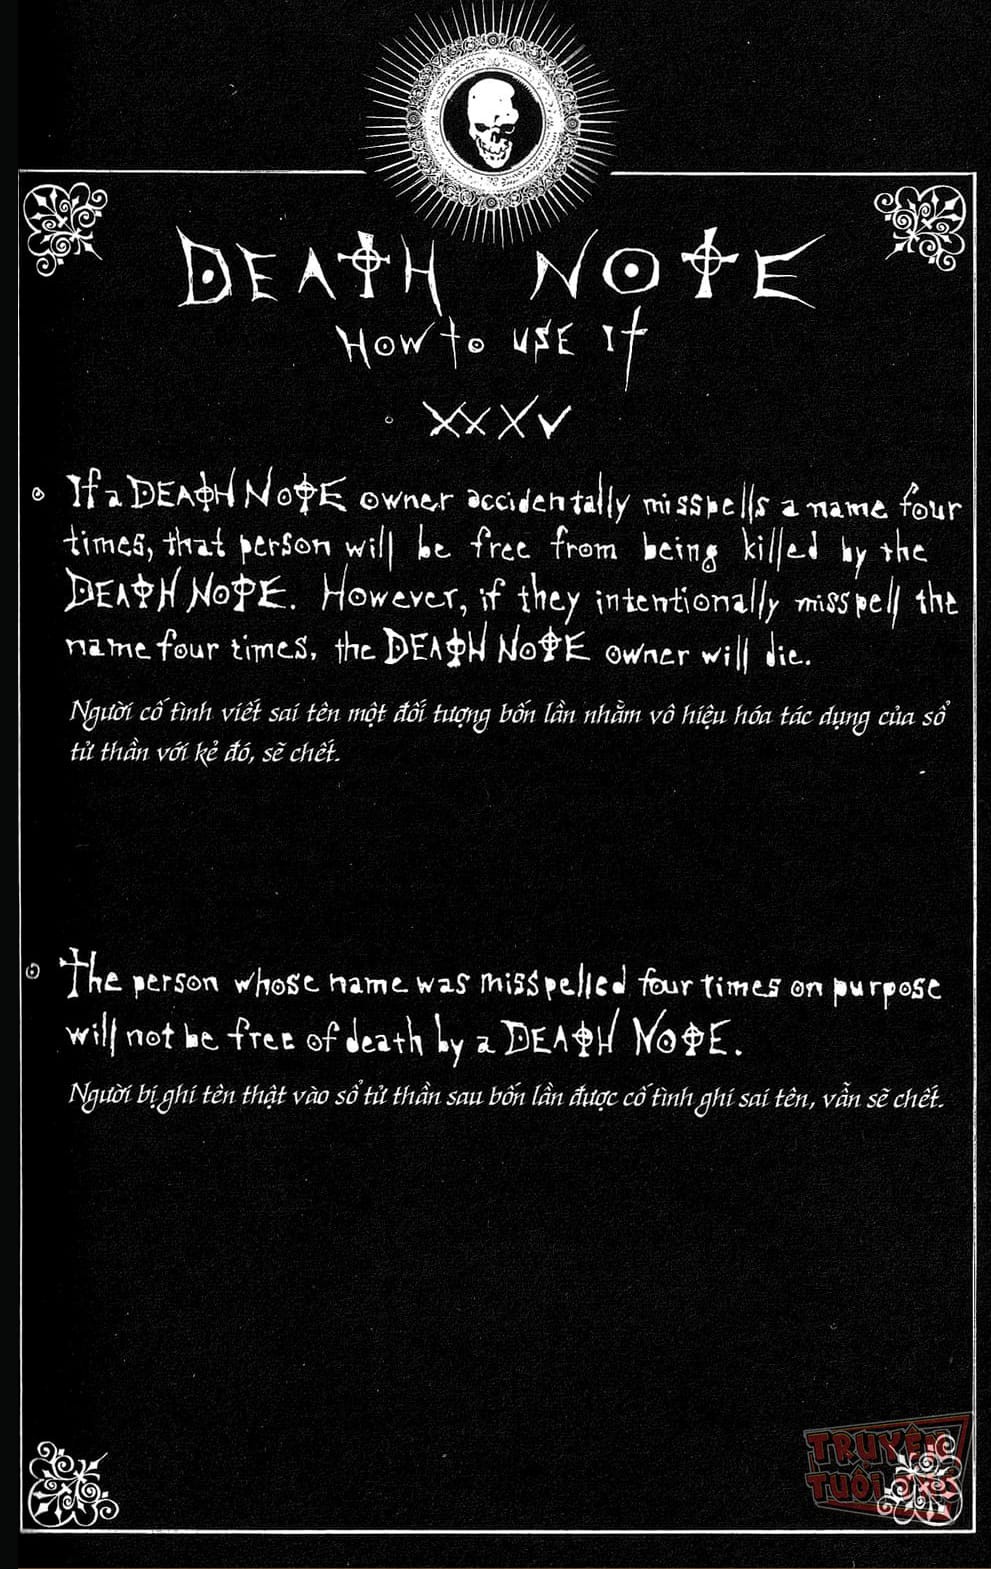 DEATH NOTE
HOW to USE It
XXXV
If a DEATH NOTE owner accidentally misspells a name four
times, that person will be free from being killed by the
DEATH NOTE. However, if they intentionally misspell the
name four times, the DEATH NOTE owner will die.
Người cố tình viết sai tên một đối tượng bốn lần nhằm vô hiệu hóa tác dụng của sổ
tử thần với kẻ đó, sẽ chết.
The person whose name was misspelled four times on purpose
will not be free of death by a DEATH NOTE.
Người bị ghi tên thật vào sổ tử thần sau bốn lần được cố tình ghi sai tên, vẫn sẽ chết.
TRUYỆN
TUỔI THƠ